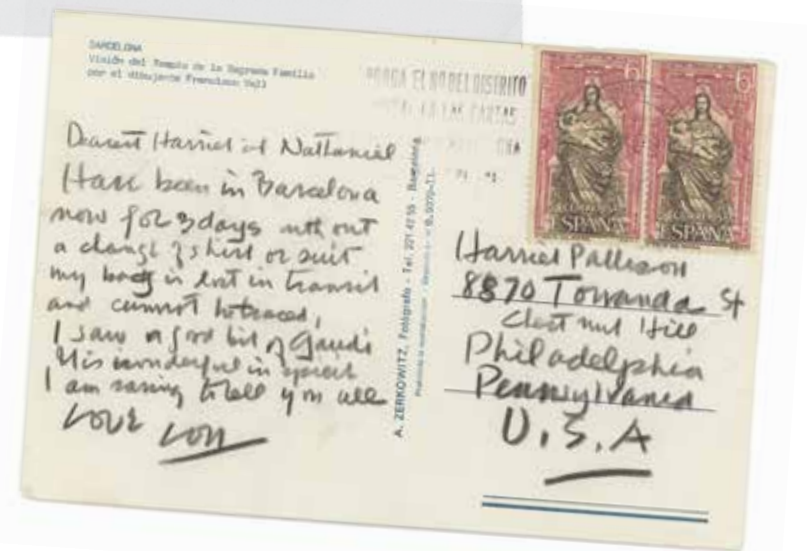 BARCELONA
Visión del Templo de la Sagrada Familia
por el dibujante Francisco Vall
PONGA EL Nº DEL DISTRITO
EN LAS CARTAS
Dearest Harriet and Nathaniel
Have been in Barcelona
now for 3 days without
a change of shirt or suit
my bag is lost in transit
and cannot be traced,
I saw a good bit of Gaudi
His wonderful in
I am saving to tell you all
Love Lou
A. ZERKOWITZ, Fotógrafo - Tel. 221 42 55 - Barcelona
6
ESPAÑA
6
ESPAÑA
Harriet Pattison
8870 Towanda St
Chestnut Hill
Philadelphia
Pennsylvania
U.S.A